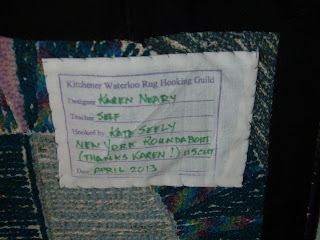 Kitchener Waterloo Rug Hooking Guild
Designer KAREN NEARY
Teacher SELF
Hooked by KATE SEELY
NEW YORK ROUNDABOUT
(THANKS KAREN!)
Date APRIL 2013